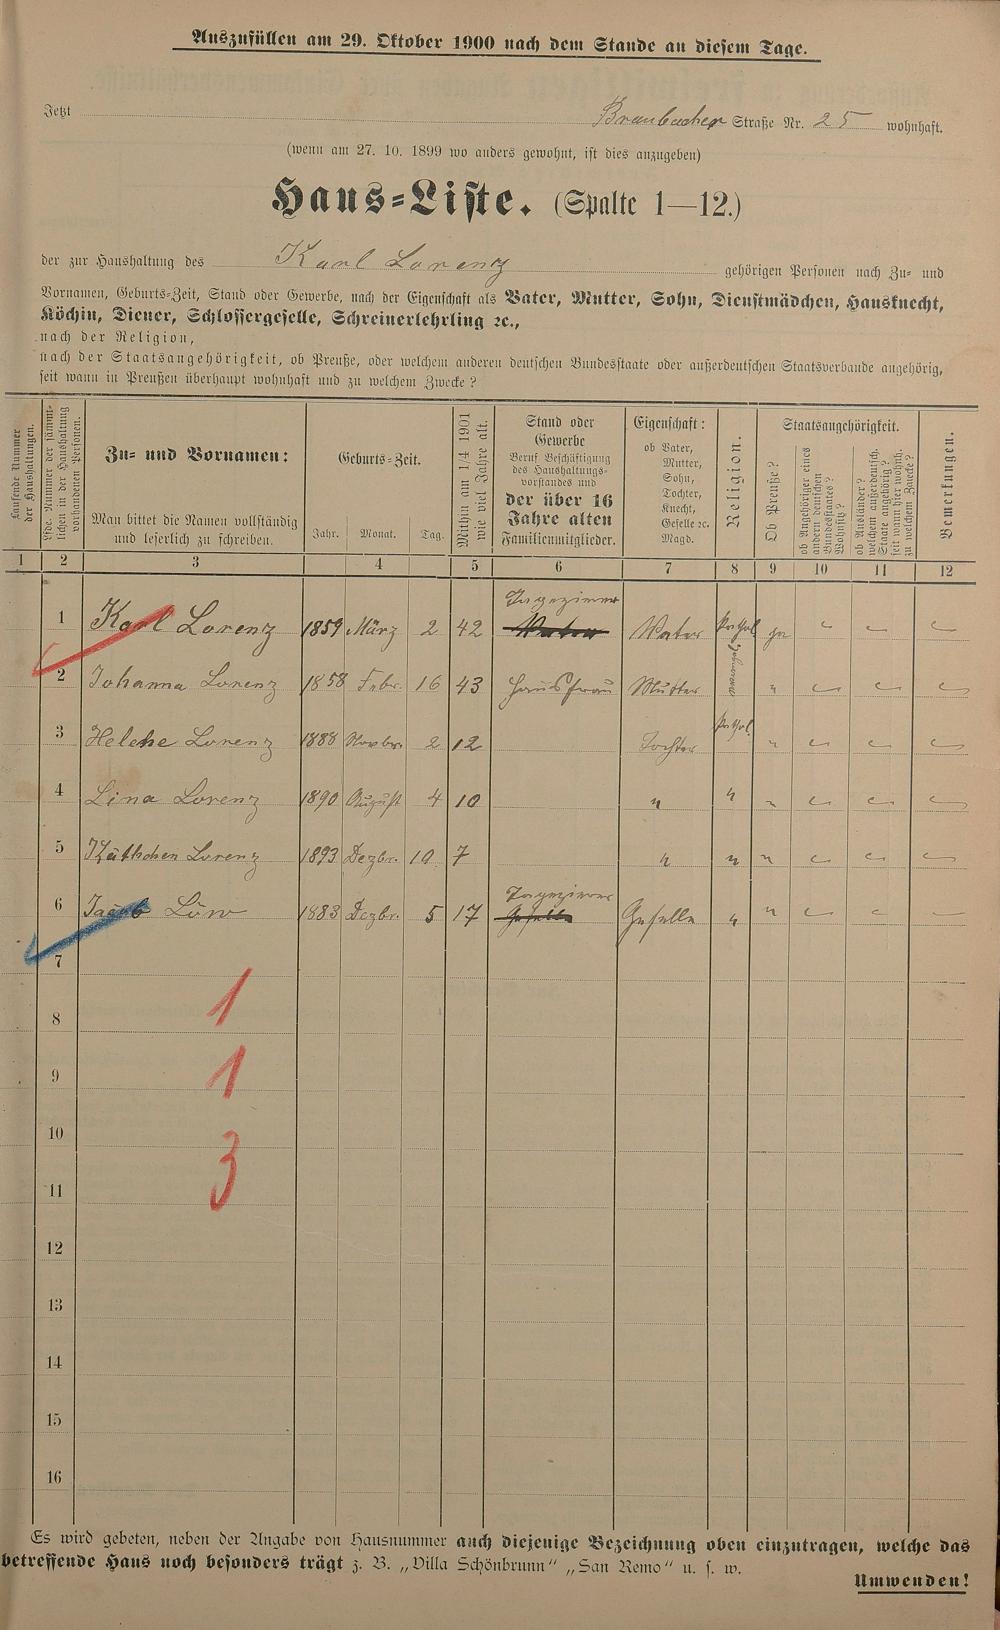 Auszufüllen am 29. Oktober 1900 nach dem Stande an diesem Tage.
Jetzt Braubacher Straße Nr. 25 wohnhaft.
(wenn am 27. 10. 1899 wo anders gewohnt, ist dies anzugeben)
Haus=Liste. (Spalte 1—12.)
der zur Haushaltung des Karl Lorenz gehörigen Personen nach Zu= und
Vornamen, Geburts=Zeit, Stand oder Gewerbe, nach der Eigenschaft als Vater, Mutter, Sohn, Dienstmädchen, Hausknecht,
Köchin, Diener, Schlossergeselle, Schreinerlehrling ꝛc.,
nach der Religion,
nach der Staatsangehörigkeit, ob Preuße, oder welchem anderen deutschen Bundesstaate oder außerdeutschen Staatsverbande angehörig,
seit wann in Preußen überhaupt wohnhaft und zu welchem Zwecke?
Laufende Nummer der Haushaltungen.
Lfde. Nummer der sämmtlichen in der Haushaltung vorhandenen Personen.
Zu= und Vornamen:
Man bittet die Namen vollständig
und leserlich zu schreiben.
Geburts=Zeit.
Jahr. Monat. Tag.
Mithin am 1/4 1901 wie viel Jahre alt.
Stand oder
Gewerbe
Beruf Beschäftigung
des Haushaltungs=
vorstandes und
der über 16
Jahre alten
Familienmitglieder.
Eigenschaft:
ob Vater,
Mutter,
Sohn,
Tochter,
Knecht,
Geselle ꝛc.
Magd.
Religion.
Staatsangehörigkeit.
Ob Preuße?
ob Angehöriger eines andern deutschen Bundesstaates? Wohnsitz?
ob Ausländer? welchem außerdeutsch. Staate angehörig? seit wann hier wohnh. zu welchem Zwecke?
Bemerkungen.
1 2 3 4 5 6 7 8 9 10 11 12
Tapezierer
1 Karl Lorenz 1859 März 2 42 Vater Vater kathol. ja
2 Johanna Lorenz 1858 Febr. 16 43 Hausfrau Mutter "
3 Helene Lorenz 1888 Novbr. 2 12 Tochter kathol. "
4 Lina Lorenz 1890 August 4 10 " " "
5 Käthchen Lorenz 1893 Dezbr. 10 7 " " "
Tapezierer
6 Jacob Löw 1883 Dezbr. 5 17 Geselle Geselle " "
7
1
8
9 1
10
3
11
12
13
14
15
16
Es wird gebeten, neben der Angabe von Hausnummer auch diejenige Bezeichnung oben einzutragen, welche das
betreffende Haus noch besonders trägt z. B. „Villa Schönbrunn" „San Remo" u. s. w.
Umwenden!